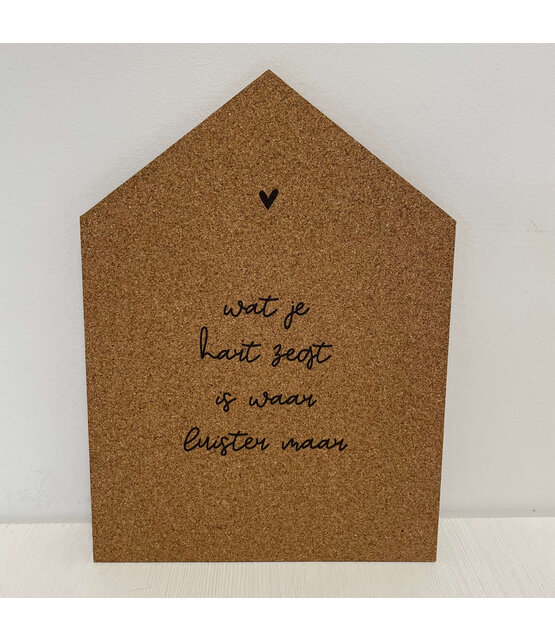 wat je
hart zegt
is waar
luister maar